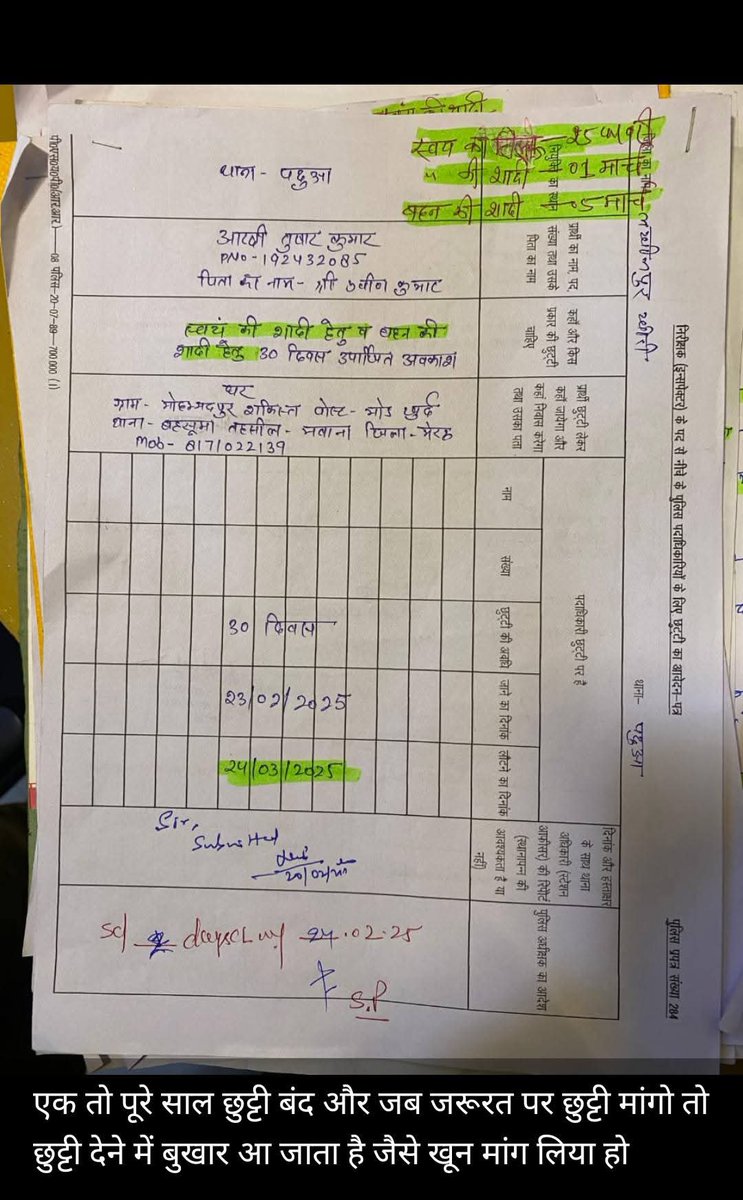 स्वयं की शादी
स्वयं का तिलक — 25 फरवरी
" की शादी — 01 मार्च
बहन की शादी — 05 मार्च
थाना - पढुआ
लखीमपुर खीरी
निरीक्षक (इन्सपेक्टर) के पद से नीचे के पुलिस पदाधिकारियों के लिए छुट्टी का आवेदन-पत्र
पुलिस प्रपत्र संख्या 284
थाना- पढुआ
प्रार्थी का नाम, पद
संख्या तथा उसके
पिता का नाम
आरक्षी तुषार कुमार
PNO-192432085
पिता का नाम- श्री प्रवीन कुमार
कहाँ और किस
प्रकार की छुट्टी
चाहिए
स्वयं की शादी हेतु व बहन की
शादी हेतु 30 दिवस उपार्जित अवकाश
प्रार्थी छुट्टी लेकर
कहां जायेगा और
कहां निवास करेगा
तथा उसका पता
घर
ग्राम- मोहम्मदपुर शकिस्त पोस्ट- मोड खुर्द
थाना- बहसूमा तहसील- मवाना जिला- मेरठ
Mob- 8171022139
पदाधिकारी छुट्टी पर है
नाम
संख्या
छुट्टी की अवधि
जाने का दिनांक
लौटने का दिनांक
30 दिवस
23/02/2025
24/03/2025
दिनांक और हस्ताक्षर
के साथ थाना
अधिकारी (स्टेशन
आफीसर) की रिपोर्ट
(स्थानापन की
आवश्यकता है या
नहीं)
Sir,
Submitted
पुलिस अधीक्षक का आदेश
Sd days CL w/ 24.02.25
S.P
08 पुलिस-20-07-89-700,000 ()
एक तो पूरे साल छुट्टी बंद और जब जरूरत पर छुट्टी मांगो तो
छुट्टी देने में बुखार आ जाता है जैसे खून मांग लिया हो